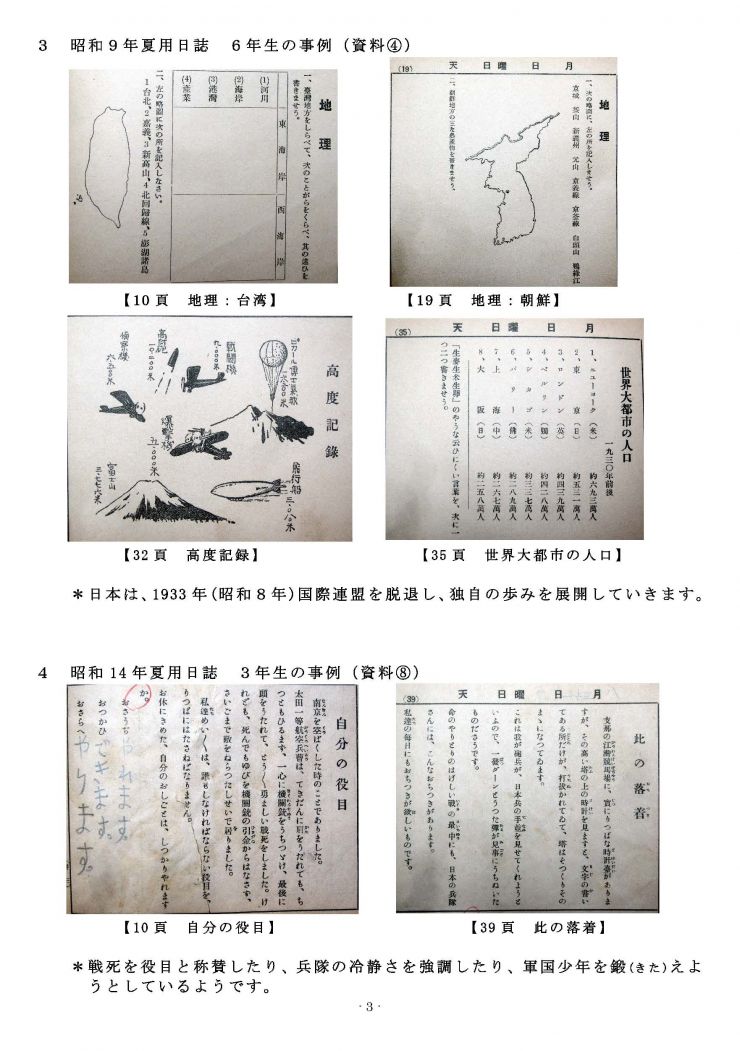 3 昭和9年夏用日誌 6年生の事例(資料④)
地理
一、臺灣地方をしらべて、次のことがらをくらべ、其の違ひを
書きませう。
東海岸
西海岸
(1)河川
(2)海岸
(3)港灣
(4)産業
二、左の略圖に次の所を記入しなさい。
1台北、2嘉義、3新高山、4北回歸線、5澎湖諸島
【10頁 地理:台湾】
(19) 天 日曜 日 月
地理
一、次の略圖に、左の所を記入しませう。
京城 釜山 新義州 元山 京義線 京釜線 白頭山 鴨綠江
二、朝鮮地方の三大農産物を書きませう。
【19頁 地理:朝鮮】
高度記録
ピカール博士氣球
一六、二〇〇米
戰鬪機
九、〇〇〇米
高射砲
偵察機
六、五〇〇米
爆撃機
五、〇〇〇米
富士山
三、七七六米
飛行船
三、〇八〇米
【32頁 高度記録】
(35) 天 日曜 日 月
世界大都市の人口
一九三〇年前後
1、ニューヨーク(米) 約六九三萬人
2、東京(日) 約五三一萬人
3、ロンドン(英) 約四三九萬人
4、ベルリン(獨) 約四二八萬人
5、シカゴ(米) 約三三七萬人
6、パリー(佛) 約二八九萬人
7、上海(中) 約二六七萬人
8、大阪(日) 約二五八萬人
「生麥生米生卵」のやうな云ひにくい言葉を、次に一
つ二つ書きませう。
【35頁 世界大都市の人口】
*日本は、1933年(昭和8年)国際連盟を脱退し、独自の歩みを展開していきます。
4 昭和14年夏用日誌 3年生の事例(資料⑧)
自分の役目
南京を空ばくした時のことでありました。
太田一等航空兵曹は、てきだんに肩をうたれても、ち
つともひるまず、一心に機關銃をうちつゞけ、最後に
頭をうたれて、とう〳〵勇ましい戰死をしました。け
れども、死んでもゆびを機關銃の引金からはなさず、
さいごまで敵をねらつたしせいで居りました。
私達めい〳〵は、誰もしなければならない役目を、
りつぱにはたさねばなりません。
お休にきめた、自分のおしごとは、しつかりやれます
か。
おさうぢ やれます
おつかひ できます。
おさらへ やります。
【10頁 自分の役目】
(39) 天 日曜 日 月
此の落着
支那の江灣競馬場に、實にりつぱな時計臺がありま
すが、その高い塔の上の時計を見ますと、文字の書い
てある所だけが、打拔かれてゐて、塔はそつくりその
まゝになつてゐます。
これは我が砲兵が、日本兵の手並を見せてくれようと
いふので、一發グーンとうつた彈が見事にうちぬいた
ものださうです。
命のやりとりのはげしい戰の最中にも、日本の兵隊
さんには、こんなおちつきがあります。
私達の毎日にもおちつきが欲しいものです。
【39頁 此の落着】
*戦死を役目と称賛したり、兵隊の冷静さを強調したり、軍国少年を鍛(きた)えよ
うとしているようです。
- 3 -